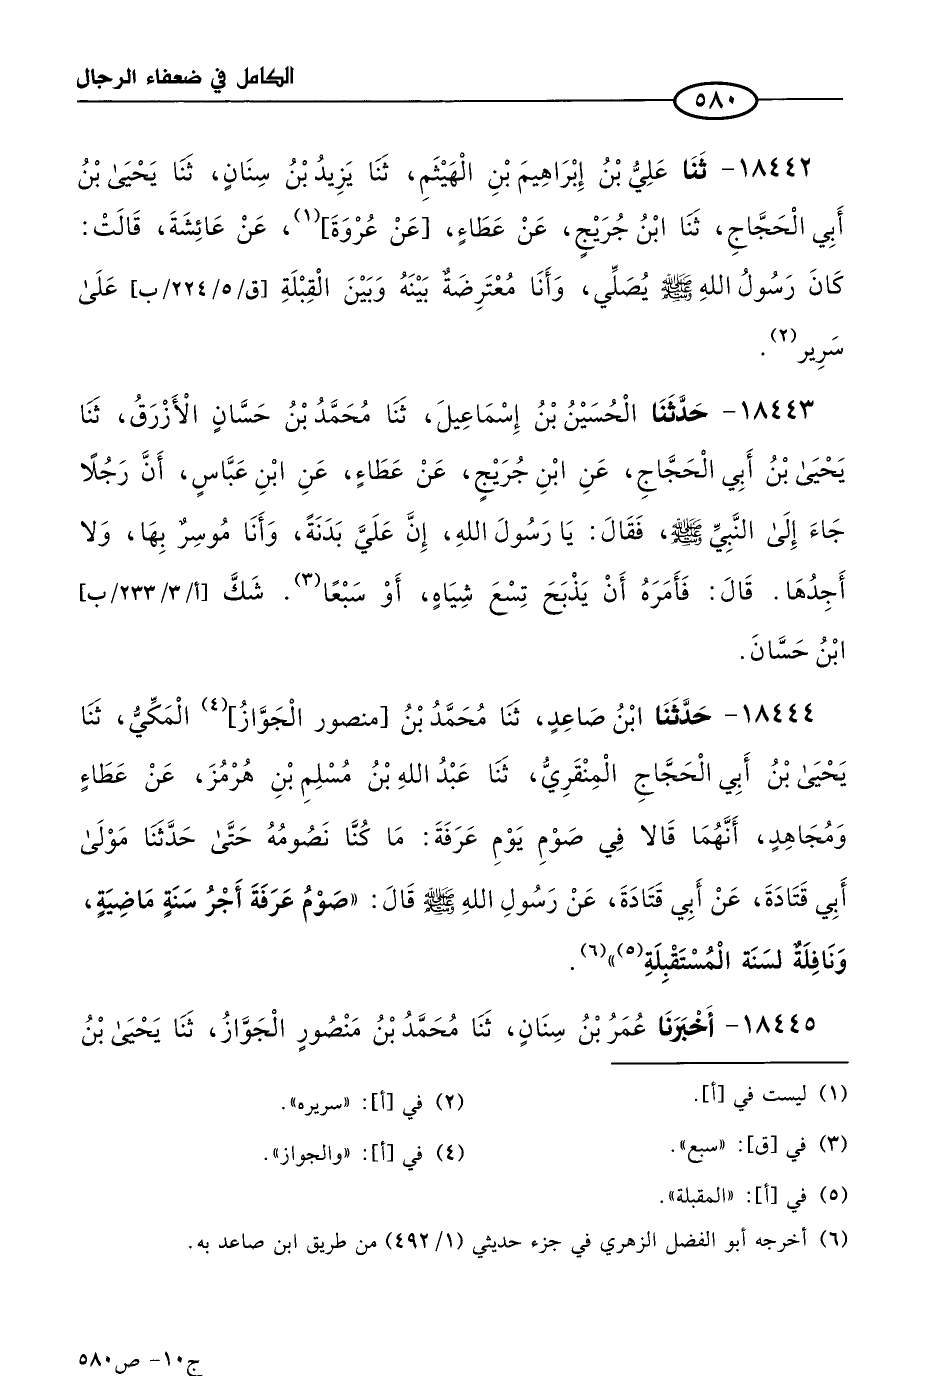 الكامل في ضعفاء الرجال
٥٨٠
١٨٤٤٢- ثَنَا عَلِيُّ بْنُ إِبْرَاهِيمَ بْنِ الْهَيْثَمِ، ثَنَا يَزِيدُ بْنُ سِنَانٍ، ثَنَا يَحْيَىٰ بْنُ
أَبِي الْحَجَّاجِ، ثَنَا ابْنُ جُرَيْجٍ، عَنْ عَطَاءٍ، [عَنْ عُرْوَةَ](١)، عَنْ عَائِشَةَ، قَالَتْ:
كَانَ رَسُولُ اللهِ ﷺ يُصَلِّي، وَأَنَا مُعْتَرِضَةٌ بَيْنَهُ وَبَيْنَ الْقِبْلَةِ [ق/٥/٢٢٤/ب] عَلَىٰ
سَرِيرٍ(٢).
١٨٤٤٣- حَدَّثَنَا الْحُسَيْنُ بْنُ إِسْمَاعِيلَ، ثَنَا مُحَمَّدُ بْنُ حَسَّانٍ الْأَزْرَقُ، ثَنَا
يَحْيَىٰ بْنُ أَبِي الْحَجَّاجِ، عَنِ ابْنِ جُرَيْجٍ، عَنْ عَطَاءٍ، عَنِ ابْنِ عَبَّاسٍ، أَنَّ رَجُلًا
جَاءَ إِلَىٰ النَّبِيِّ ﷺ، فَقَالَ: يَا رَسُولَ اللهِ، إِنَّ عَلَيَّ بَدَنَةً، وَأَنَا مُوسِرٌ بِهَا، وَلَا
أَجِدُهَا. قَالَ: فَأَمَرَهُ أَنْ يَذْبَحَ تِسْعَ شِيَاهٍ، أَوْ سَبْعًا(٣). شَكَّ [أ/٣/٢٣٣/ب]
ابْنُ حَسَّانَ.
١٨٤٤٤- حَدَّثَنَا ابْنُ صَاعِدٍ، ثَنَا مُحَمَّدُ بْنُ [منصور الْجَوَّازُ](٤) الْمَكِّيُّ، ثَنَا
يَحْيَىٰ بْنُ أَبِي الْحَجَّاجِ الْمِنْقَرِيُّ، ثَنَا عَبْدُ اللهِ بْنُ مُسْلِمِ بْنِ هُرْمُزَ، عَنْ عَطَاءٍ
وَمُجَاهِدٍ، أَنَّهُمَا قَالَا فِي صَوْمِ يَوْمِ عَرَفَةَ: مَا كُنَّا نَصُومُهُ حَتَّىٰ حَدَّثَنَا مَوْلَىٰ
أَبِي قَتَادَةَ، عَنْ أَبِي قَتَادَةَ، عَنْ رَسُولِ اللهِ ﷺ قَالَ: «صَوْمُ عَرَفَةَ أَجْرُ سَنَةٍ مَاضِيَةٍ،
وَنَافِلَةٌ لسَنَة الْمُسْتَقْبِلَةِ(٥)»(٦).
١٨٤٤٥- أَخْبَرَنَا عُمَرُ بْنُ سِنَانٍ، ثَنَا مُحَمَّدُ بْنُ مَنْصُورٍ الْجَوَّازُ، ثَنَا يَحْيَىٰ بْنُ
(١) ليست في [أ].
(٢) في [أ]: «سريره».
(٣) في [ق]: «سبع».
(٤) في [أ]: «والجواز».
(٥) في [أ]: «المقبلة».
(٦) أخرجه أبو الفضل الزهري في جزء حديثي (١/ ٤٩٢) من طريق ابن صاعد به.
ج١٠- ص٥٨٠